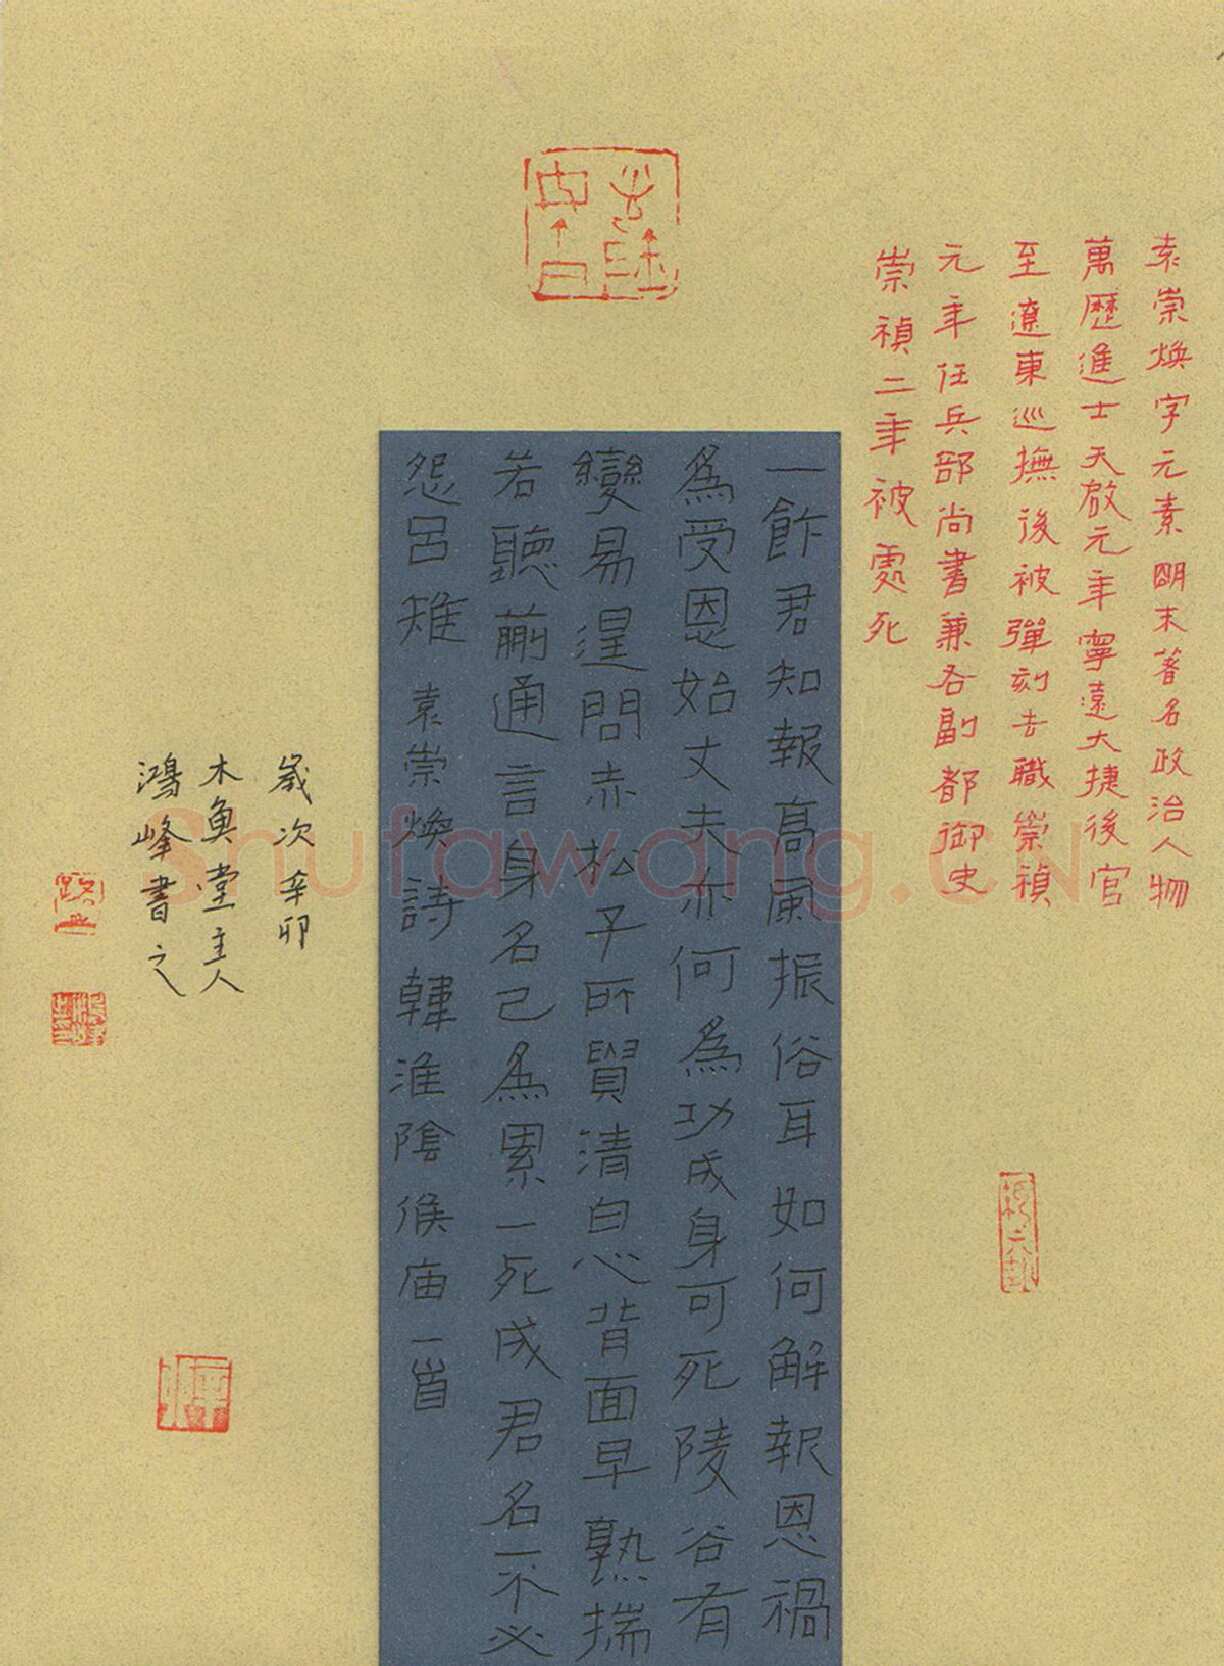 袁崇焕字元素明末著名政治人物
萬歷進士天啟元年寧遠大捷後官
至遼東巡撫後被彈刻去職崇禎
元年任兵部尚書兼右副都御史
崇禎二年被處死
一飰君知報高風振俗耳如何解報恩禍
為受恩始丈夫亦何為功成身可死陵谷有
變易遑問赤松子所貿清白心背面早熟揣
若聽蒯通言身名已為累一死成君名不必
怨呂雉 袁崇焕詩韓淮陰侯庙一首
歲次辛卯
木魚堂主人
鴻峰書之
Shufawang.CN